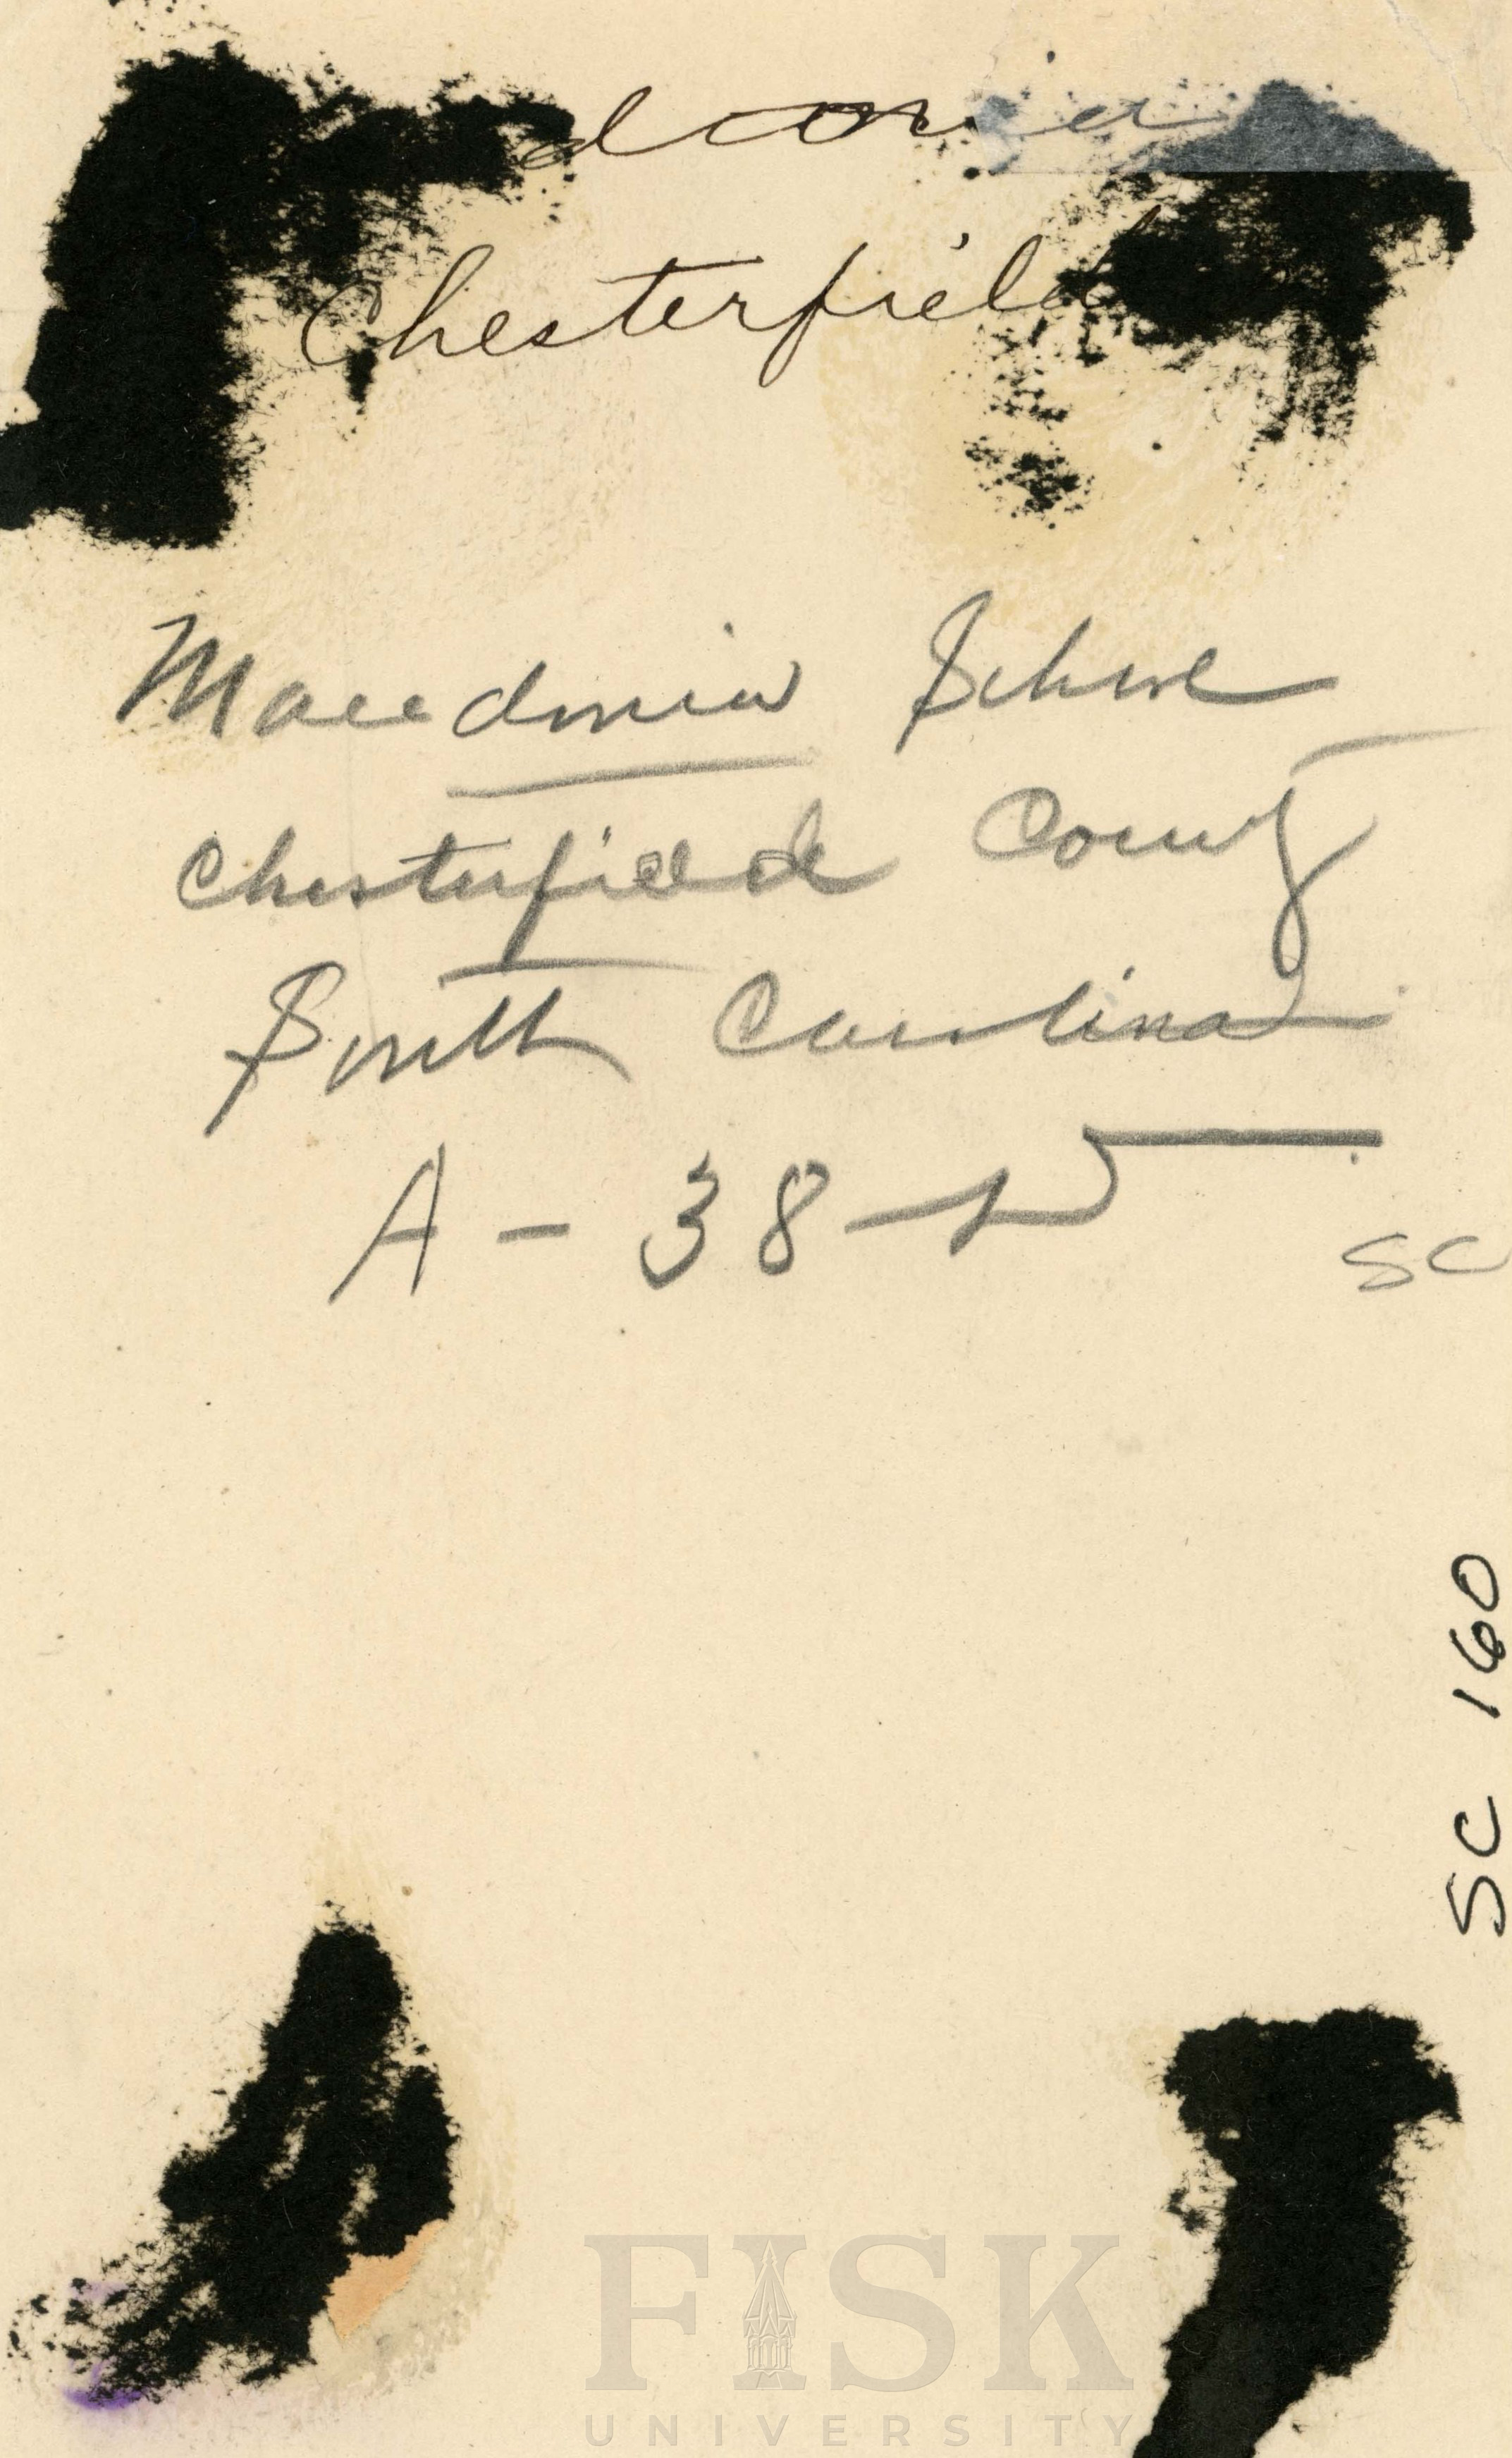 donia
Chesterfield
Macedonia School
Chesterfield County
South Carolina
A - 38 -
SC
SC 160
FISK
UNIVERSITY